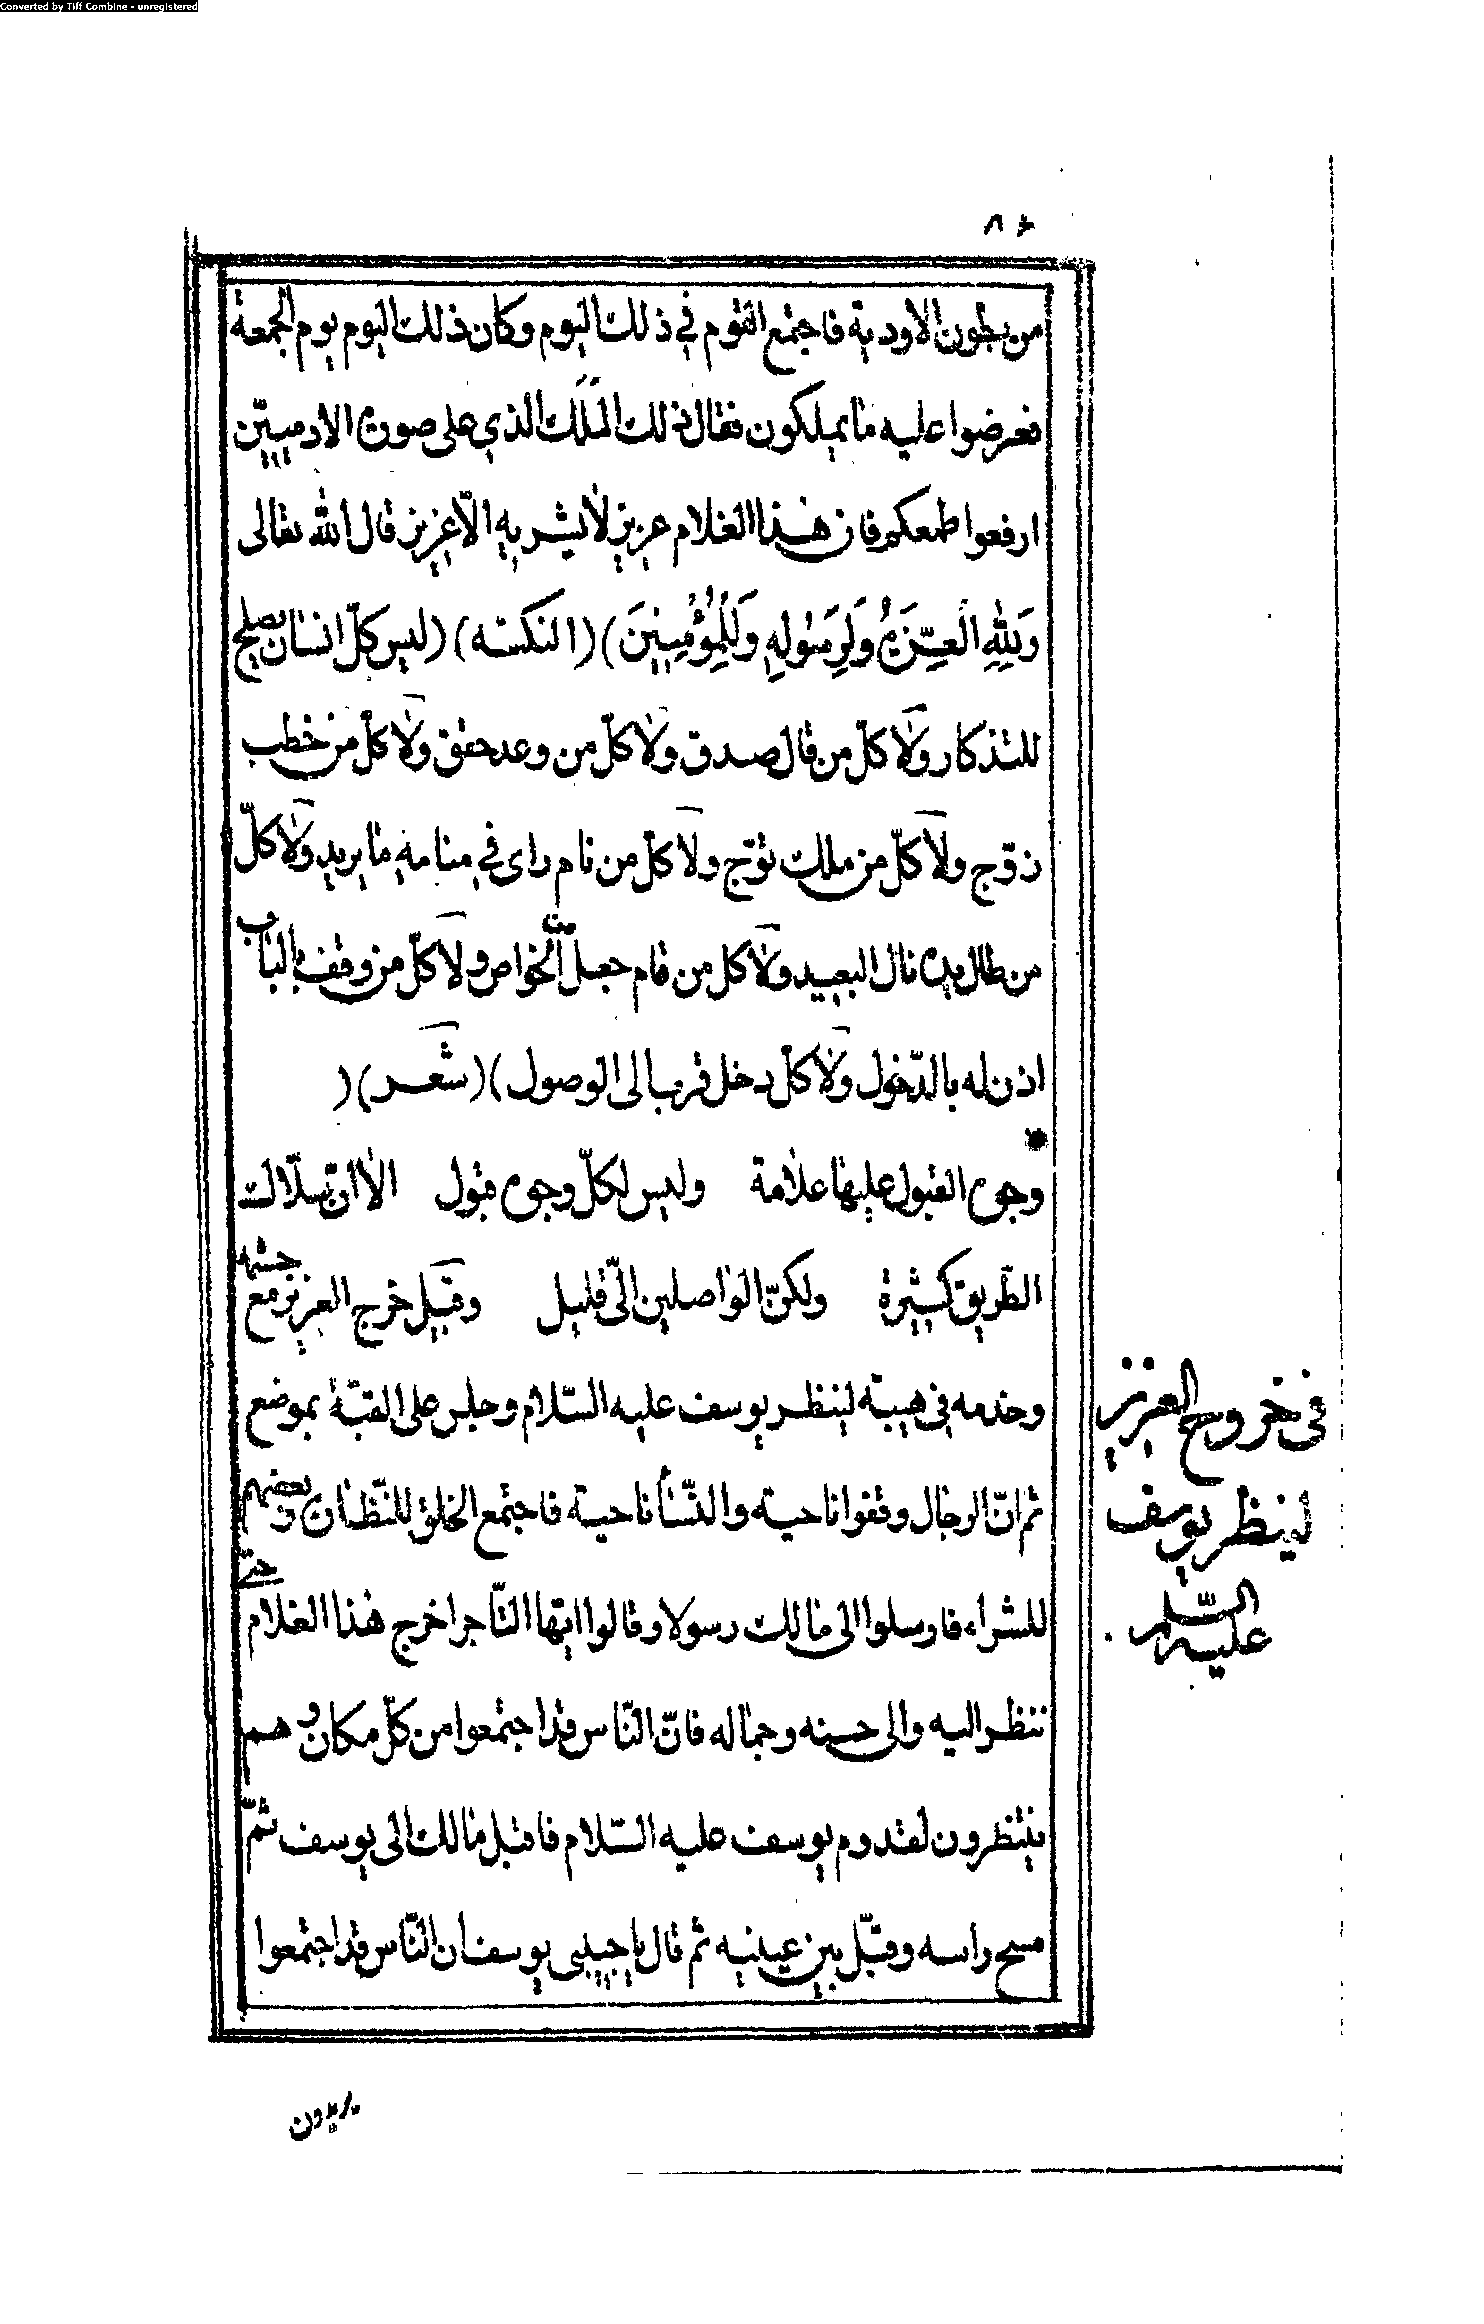 Converted by Tiff Combine - unregistered
٨٤
من بطون الاودية فاجتمع القوم في ذلك اليوم وكان ذلك اليوم يوم الجمعة
فعرضوا عليه ما يملكون فقال ذلك الملك الذي على صورة الادميين
ارفعوا طمعكم فان هذا الغلام عزيز لا يشريه الا عزيز قال الله تعالى
وَلِلّهِ الْعِزَّةُ وَلِرَسُولِهِ وَلِلْمُؤْمِنِينَ) (النكتة) (ليس كلّ انسان يصلح
للتذكار ولا كلّ من قال صدق ولا كلّ من وعد حقق ولا كلّ من خطب
زوّج ولا كلّ من ملك توّج ولا كلّ من نام راى في منامه ما يريد ولا كلّ
من طال يده نال البعيد ولا كل من قام جعل من الخواص ولا كلّ من وقف بالباب
اذن له بالدّخول ولا كلّ دخل قرب الى الوصول) (شعر) (
وجوه القبول عليها علامة وليس لكلّ وجوه قبول الا انّ سلاك
الطّريق كثيرة ولكنّ الواصلين اليّ قليل وقيل خرج العزيز مع حشمه
وخدمه في هيبته لينظر يوسف عليه السّلام وجلس على القبّة بموضع
ثم انّ الرجال وقفوا ناحية والنّسأ ناحية فاجتمع الخلق للنّظارة وبعضهم
للشرأء فارسلوا الى مالك رسولا وقالوا ايّها التّاجر اخرج هذا الغلام حتّى
ننظر اليه والى حسنه وجماله فانّ النّاس قد اجتمعوا من كلّ مكان وهم
ينتظرون لقدوم يوسف عليه السّلام فاقبل مالك الى يوسف ثمّ
مسح راسه وقبّل بين عينيه ثم قال يا حبيبى يوسف ان النّاس قد اجتمعوا
في خروج العزيز
لينظر يوسف
عليه السّلام
يريدون